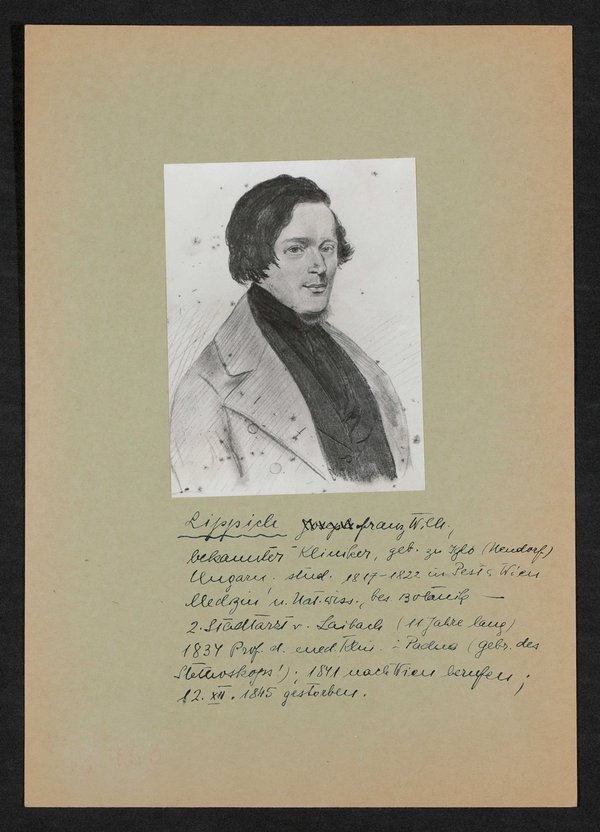 Lippich franz Wilh.,
bekannter Kliniker, geb. zu Iglo (Neudorf)
Ungarn. stud. 1817-1822 in Pest u Wien
Medizin u. Nat. wiss., bes Botanik —
2. Stadtarzt v. Laibach (11 Jahre lang)
1834 Prof. d. med Klin. i. Padua (gebr. des
Stethoskops!); 1841 nach Wien berufen;
12. XII. 1845 gestorben.